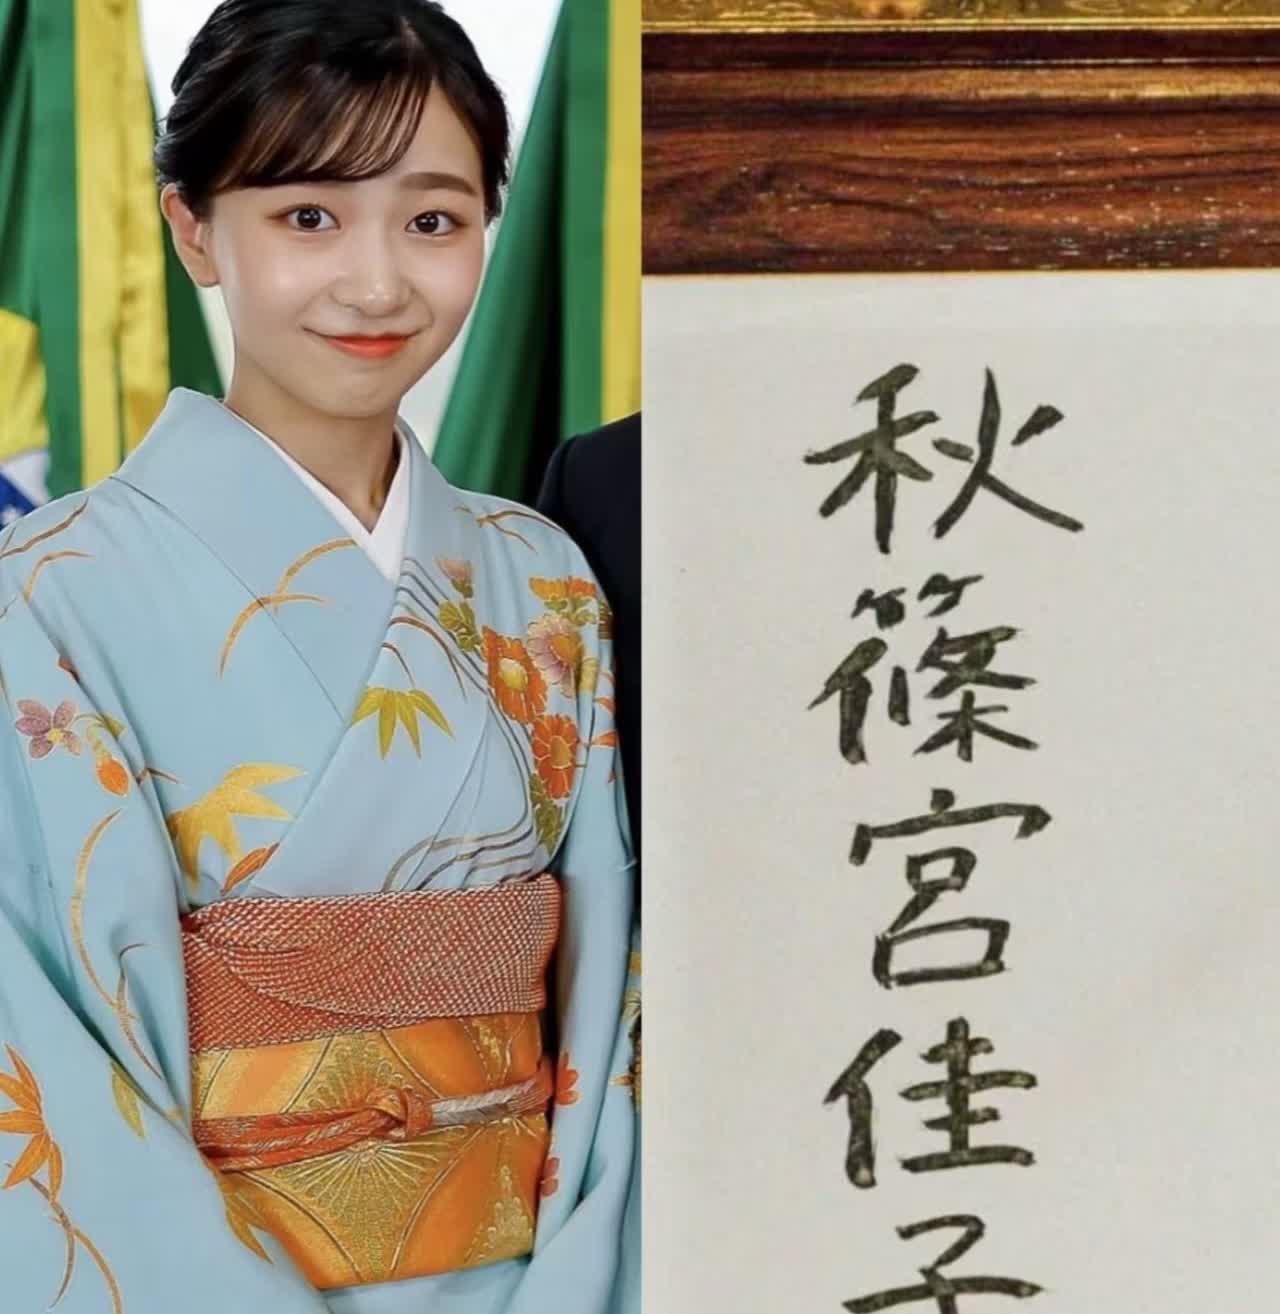 秋篠宮佳子